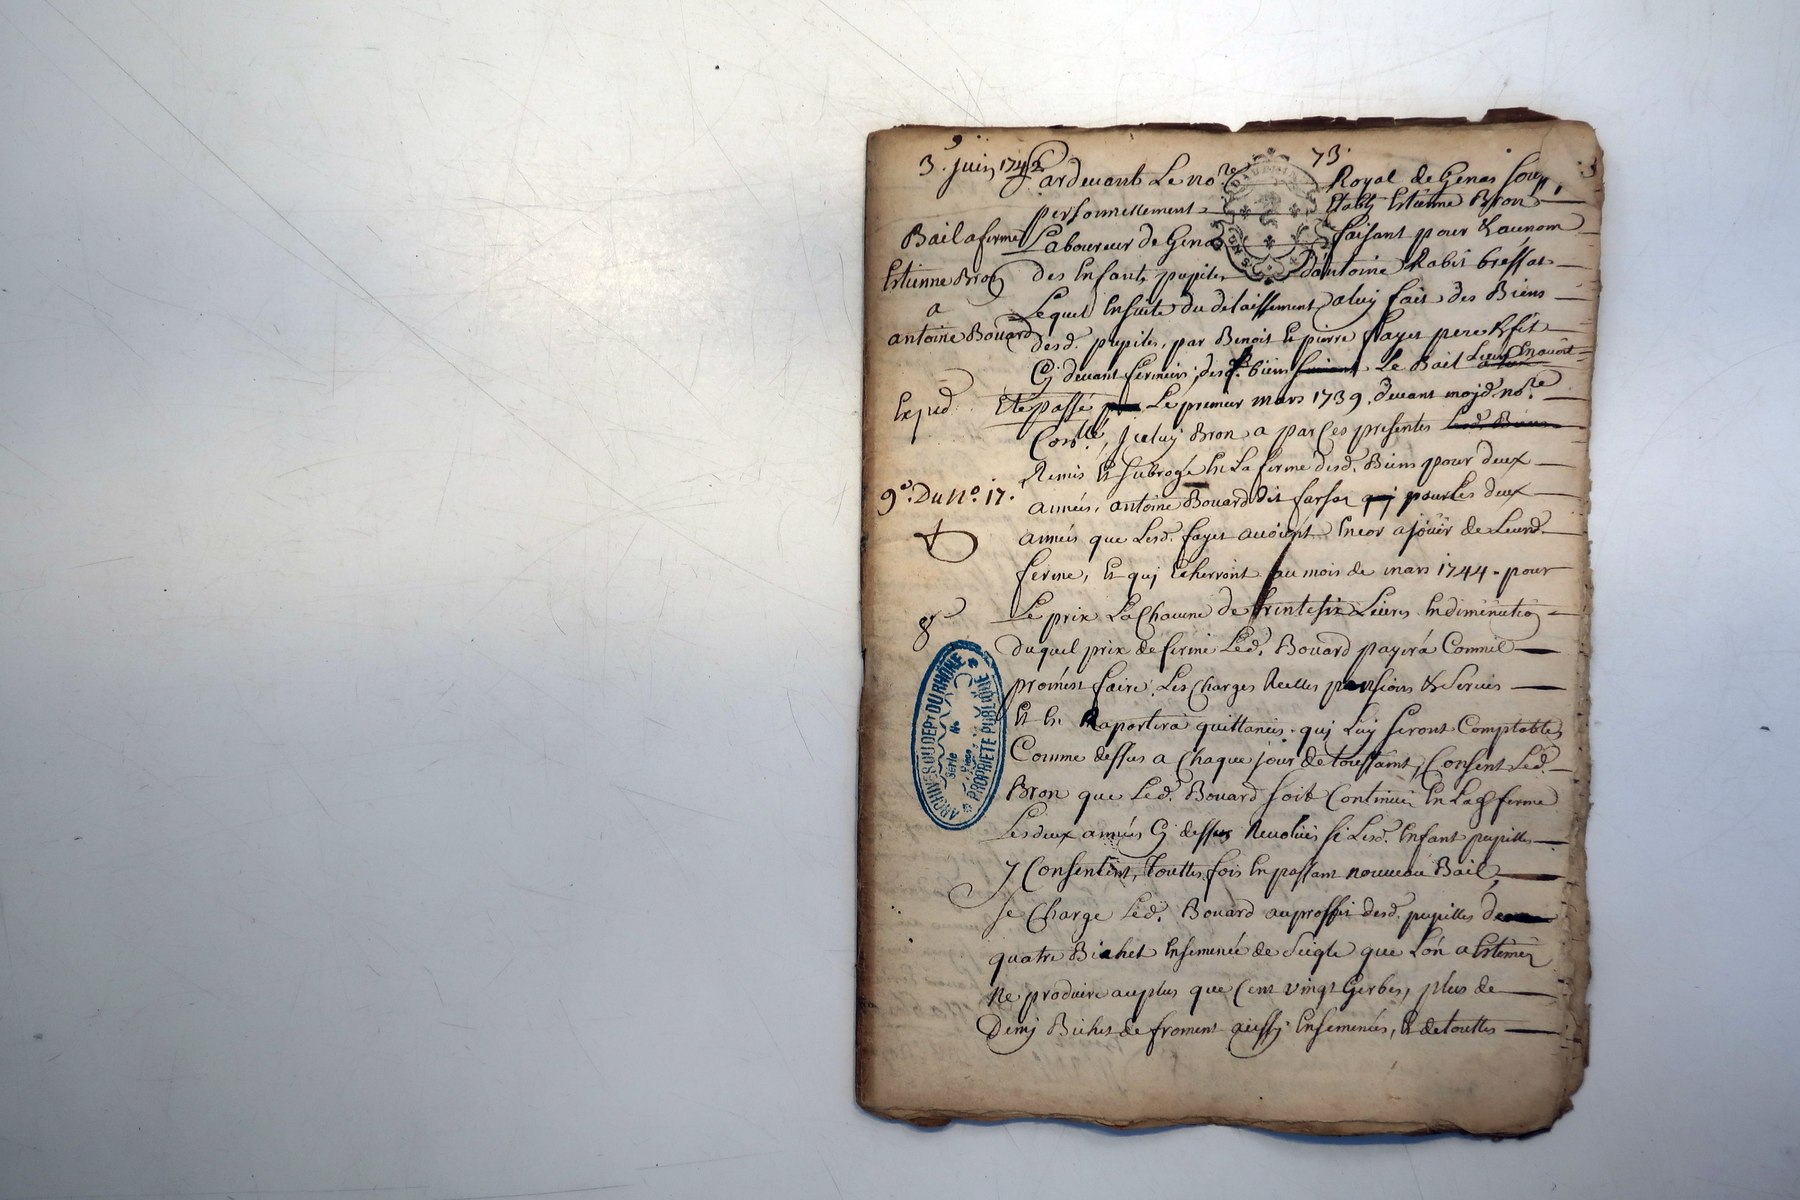 73.
3. juin 1742
Pardevant Le no.re Royal de Genas sous.
personnellement Etably Estienne Bron
Bail a ferme
Estienne Bron
a
antoine Bouard
Exped.
9.e Du N.o 17.
gr
Laboureur de Genas faisant pour & au nom
des Enfants pupiles d'antoine Rabit bressat
Lequel Ensuite du delaissement a luy fait des Biens
desd. pupiles, par Benoit Et pierre fayet pere & fils
Cy devant fermiers, desd. biens suivant Le Bail Leur En avoit
Ete passé Le premier mars 1739. devant moyd. no.re
Iceluy Bron a par Ces presentes Lesd. Biens
Remis Et subrogé En La ferme desd. Biens pour deux
années, antoine Bouard dit farfat pour Les deux
années que Lesd. fayet avoient Encor a joüir de Leurd.
ferme, Et quj Echerront au mois de mars 1744. pour
Le prix La Chacune de trente six Livres En diminution
duquel prix de ferme Led. Bouard payera Comme
promest faire. Les Charges Reelles pensions & servis
Et En Raportera quittances. quj Luy seront Comptables
Comme dessus a Chaque jour de toussaint, Consent Led.
Bron que Led. Bouard soit Continué En Lad. ferme
Les deux années Cy dessus Revolües si Lesd. Enfant pupilles
y Consentent, touttes fois En passant nouveau Bail,
se Charge Led. Bouard au proffit desd. pupilles de
quatre Bichet Ensemencé de seigle que L'on a Estimés
Ne produire au plus que Cent vingt Gerbes, plus de
Demy Bichet de froment aussy Ensemencés, & de touttes
ARCHIVES DU DEP.T DU RHÔNE
Série
N.o
PROPRIETE PUBLIQUE